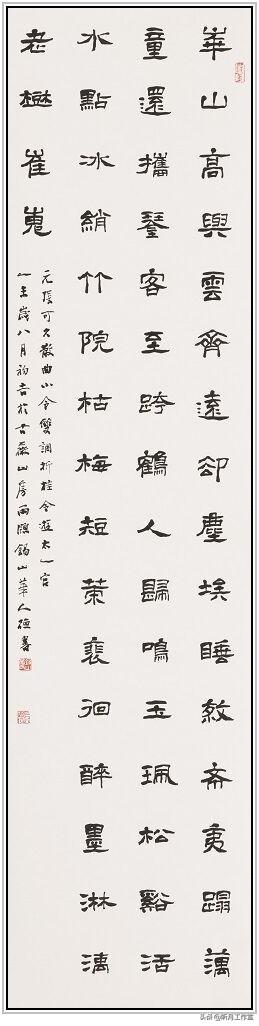 崋山高與雲齊遠卻塵埃睡希夷蹋
童還攜琴客至跨鶴人歸鳴玉珮松谿活
水點冰綃竹院枯梅短策裵徊醉墨淋漓
老樹崔嵬
元張可久散曲小令雙調折桂令遊太乙宮
歲八月初吉於古山房雨牕錫山華人德書
头条@听月工作室